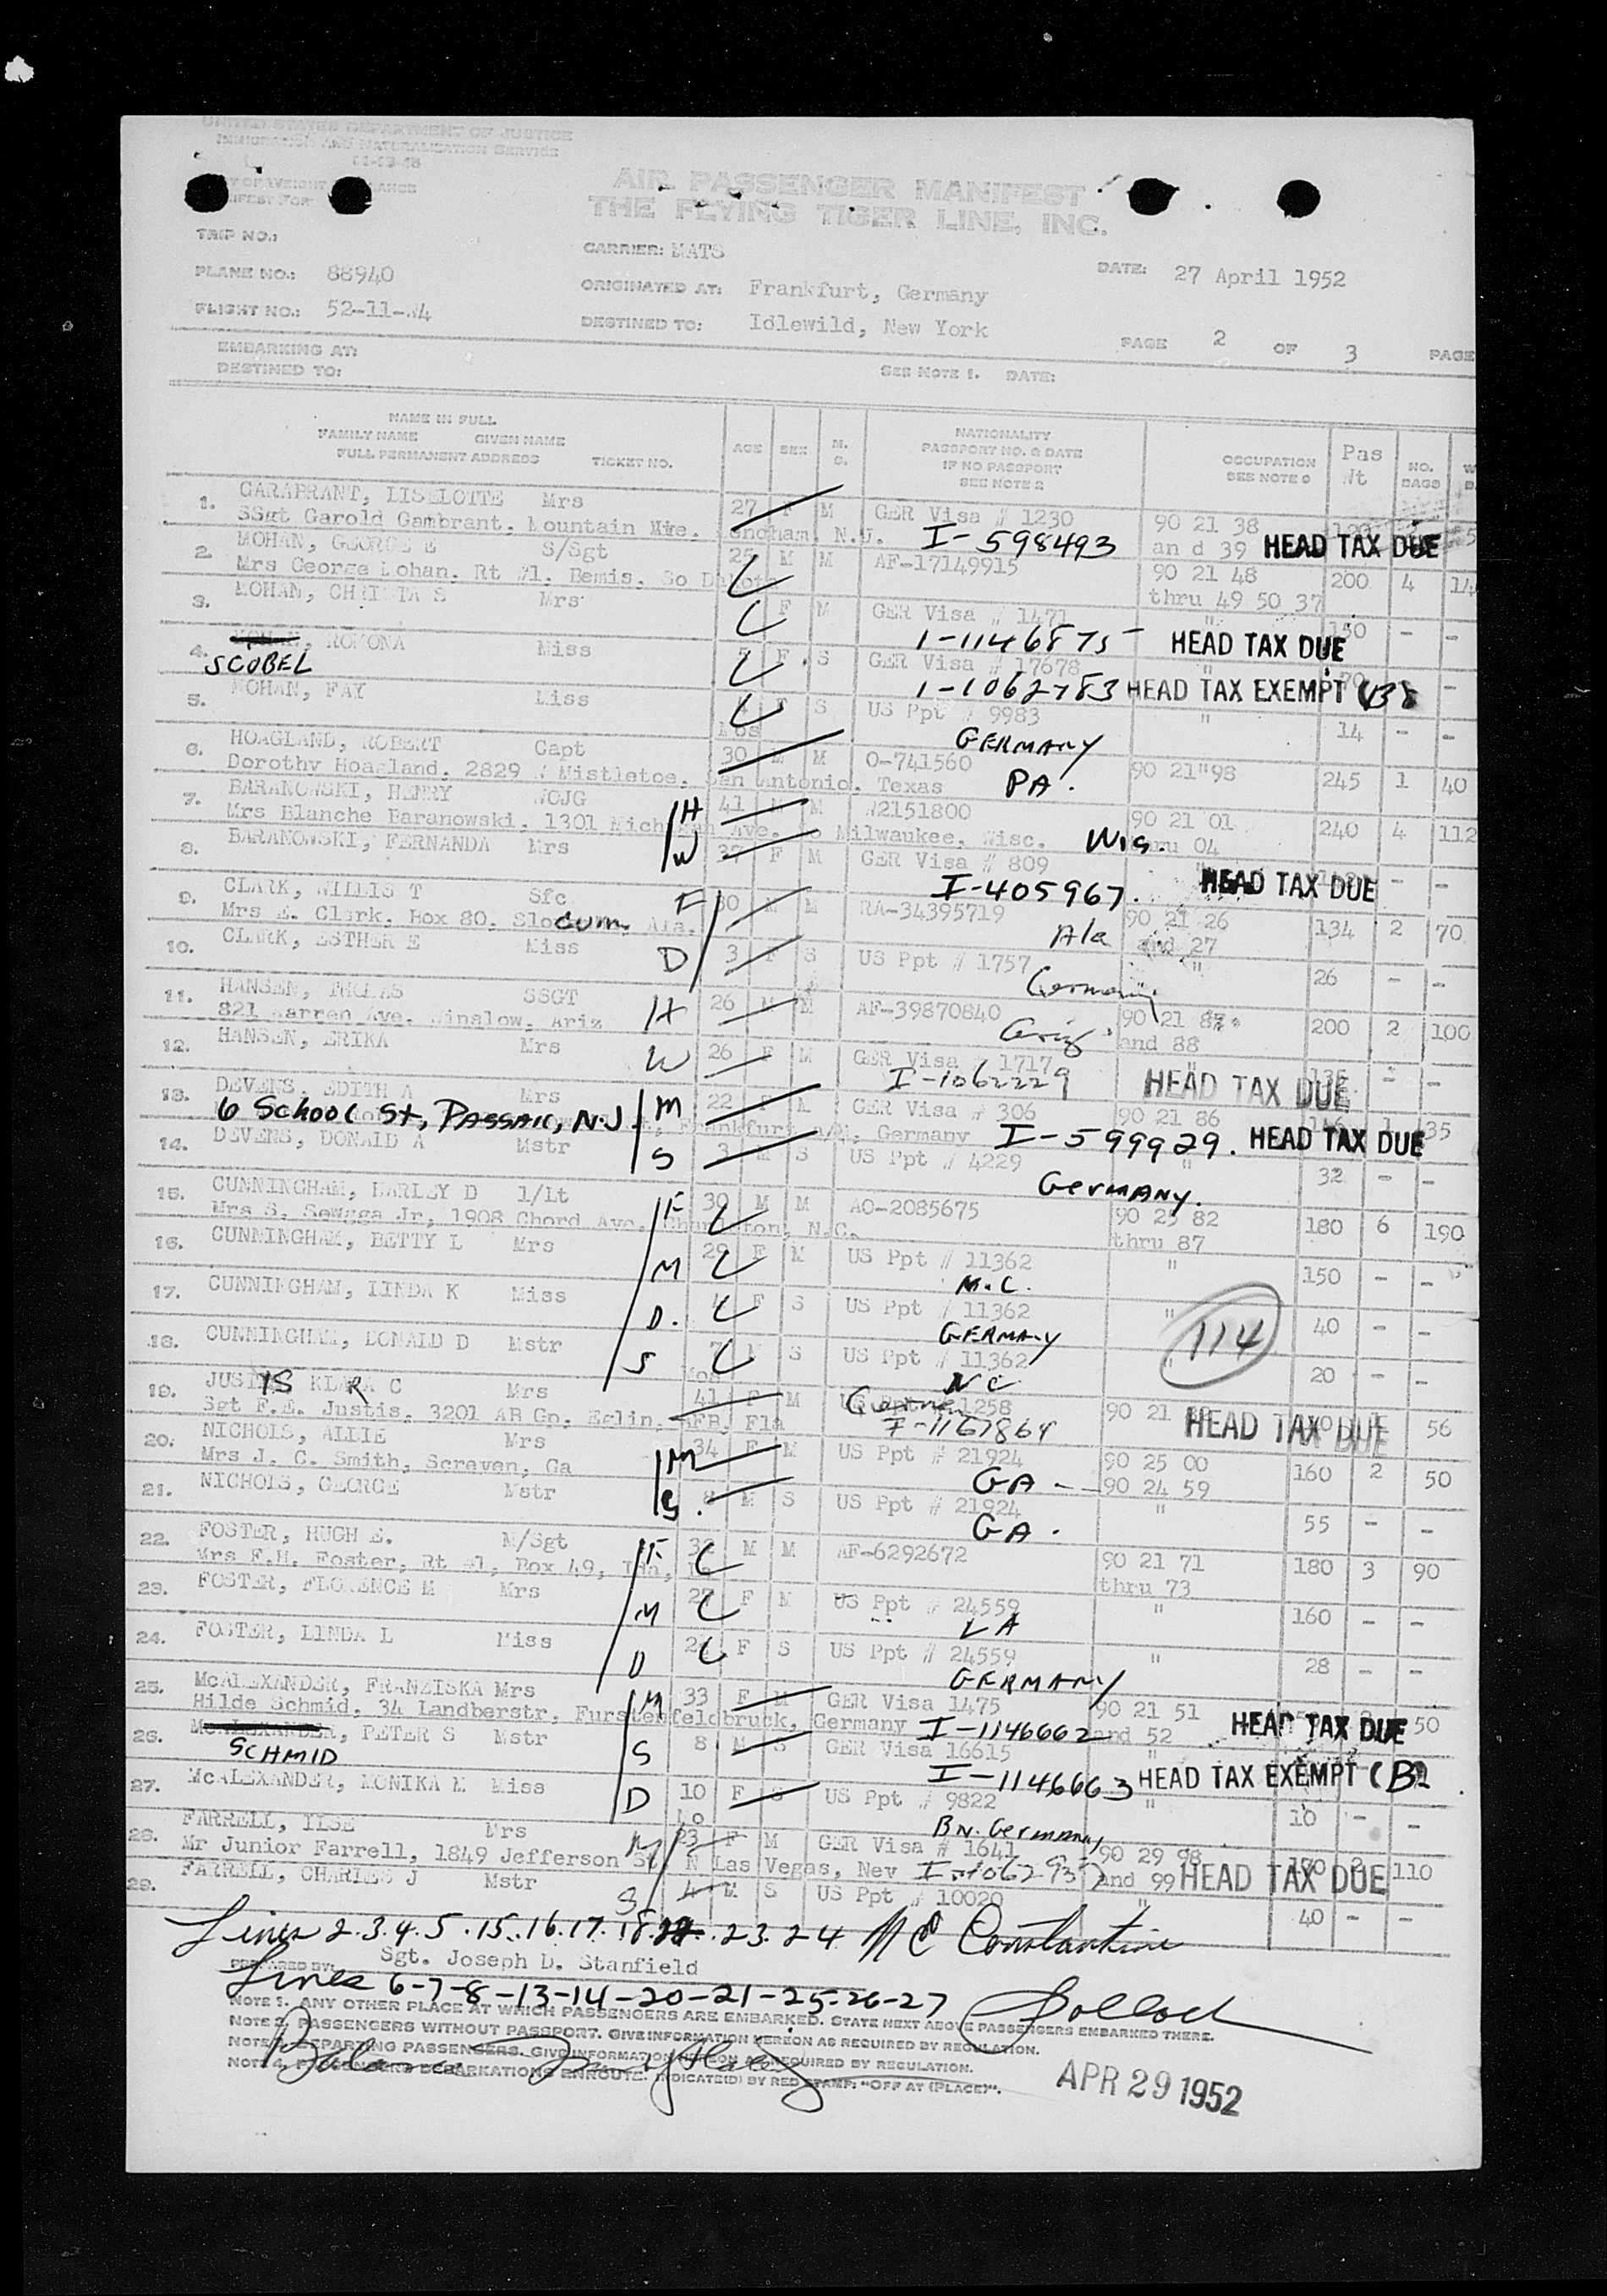 UNITED STATES DEPARTMENT OF JUSTICE
IMMIGRATION AND NATURALIZATION SERVICE
AIR PASSENGER MANIFEST
THE FLYING TIGER LINE, INC.
TRIP NO.:
CARRIER: MATS
DATE: 27 April 1952
PLANE NO.: 88940
ORIGINATED AT: Frankfurt, Germany
FLIGHT NO.: 52-11-
DESTINED TO: Idlewild, New York
PAGE 2 OF 3 PAGE
EMBARKING AT:
DESTINED TO:
SEE NOTE 1. DATE:
NAME IN FULL
FAMILY NAME GIVEN NAME
FULL PERMANENT ADDRESS TICKET NO.
AGE SEX M. S.
NATIONALITY
PASSPORT NO. & DATE
IF NO PASSPORT
SEE NOTE 2
OCCUPATION
SEE NOTE
Pas Wt
NO. BAGS
1. GARABRANT, LISELOTTE Mrs 27 F M GER Visa # 1230 90 21 38
SSgt Garold Gambrant, Mountain N.J. I-598493 an d 39 HEAD TAX DUE
2. MOHAN, GEORGE E S/Sgt 25 M M AF-17149915 90 21 48 200 4 14
Mrs George Mohan, Rt #1, Bemis, So Dakota thru 49 50 37
3. MOHAN, CHRISTA S Mrs F M GER Visa # 1471 150 - -
1-1146875 HEAD TAX DUE
4. MOHAN, ROMONA Miss F S GER Visa # 17678 " 70 -
SCOBEL 1-1062783 HEAD TAX EXEMPT
5. MOHAN, FAY Miss 4 F S US Ppt # 9983 " 14 - -
Mos GERMANY
6. HOAGLAND, ROBERT Capt 30 M M O-741560 90 21 98 245 1 40
Dorothy Hoagland, 2829 W Mistletoe, San Antonio, Texas PA.
7. BARANOWSKI, HENRY WOJG H 41 M M W2151800 90 21 01 240 4 112
Mrs Blanche Baranowski, 1301 Michigan Ave, So Milwaukee, Wisc. Wis. thru 04
8. BARANOWSKI, FERNANDA Mrs W 37 F M GER Visa # 809 " - -
I-405967. HEAD TAX DUE
9. CLARK, WILLIS T Sfc F 30 M M RA-34395719 90 21 26 134 2 70
Mrs E. Clark, Box 80, Slocum, Ala. Ala and 27
10. CLARK, ESTHER E Miss D 3 F S US Ppt # 1757 " 26 - -
Germany
11. HANSEN, THOMAS SSGT H 26 M M AF-39870840 90 21 87 200 2 100
821 Warren Ave, Winslow, Ariz Ariz and 88
12. HANSEN, ERIKA Mrs W 26 F M GER Visa # 1717 " 135 - -
I-1062229 HEAD TAX DUE
13. DEVENS, EDITH A Mrs M 22 F M GER Visa # 306 90 21 86 1 35
6 School St, PASSAIC, N.J. Frankfurt a/M, Germany I-599929. HEAD TAX DUE
14. DEVENS, DONALD A Mstr S 3 M S US Ppt # 4229 " 32 - -
GerMANY.
15. CUNNINGHAM, HARLEY D 1/Lt F 30 M M AO-2085675 90 25 82 180 6 190
Mrs S. Jr, 1908 Chord Ave, N.C. thru 87
16. CUNNINGHAM, BETTY L Mrs M 29 F M US Ppt # 11362 " 150 - -
N.C.
17. CUNNINGHAM, LINDA K Miss D. 4 F S US Ppt # 11362 " 40 - -
GERMANY 114
18. CUNNINGHAM, DONALD D Mstr S 7 M S US Ppt # 11362 " 20 - -
Mos NC
19. JUSTIS KLARA C Mrs 41 F M 1258 90 21 56
Sgt F.E. Justis, 3201 AB Gp, Eglin, AFB, Fla I-1167864 HEAD TAX DUE
20. NICHOLS, ALLIE Mrs M 34 F M US Ppt # 21924 90 25 00 160 2 50
Mrs J. C. Smith, Screven, Ga GA - 90 24 59
21. NICHOLS, GEORGE Mstr S. 8 M S US Ppt # 21924 " 55 - -
GA.
22. FOSTER, HUGH E. M/Sgt F. M M AF-6292672 90 21 71 180 3 90
Mrs F.H. Foster, Rt #1, Box 49, Ida, La thru 73
23. FOSTER, FLORENCE M Mrs M 27 F M US Ppt # 24559 " 160 - -
LA
24. FOSTER, LINDA L Miss D F S US Ppt # 24559 " 28 - -
GERMANY
25. McALEXANDER, FRANZISKA Mrs M 33 F M GER Visa 1475 90 21 51 50
Hilde Schmid, 34 Landberstr, Furstenfeldbruck, Germany I-1146662 and 52 HEAD TAX DUE
26. McALEXANDER, PETER S Mstr S 8 M S GER Visa 16615 "
SCHMID I-1146663 HEAD TAX EXEMPT
27. McALEXANDER, MONIKA M Miss D 10 F S US Ppt # 9822 " 10 - -
Mo BN. Germany
28. FARRELL, ILSE Mrs M 23 F M GER Visa # 1641 90 29 98 110
Mr Junior Farrell, 1849 Jefferson St, N Las Vegas, Nev and 99 HEAD TAX DUE
29. FARRELL, CHARLES J Mstr S 4 M S US Ppt # 10020 " 40 - -
Lines 2.3.4.5.15.16.17.18.22.23.24 Constantine
PREPARED BY: Sgt. Joseph D. Stanfield
Lines 6-7-8-13-14-20-21-25-26-27
NOTE 1. ANY OTHER PLACE AT WHICH PASSENGERS ARE EMBARKED. STATE NEXT ABOVE PASSENGERS EMBARKED THERE.
NOTE 2. PASSENGERS WITHOUT PASSPORT. GIVE INFORMATION HEREON AS REQUIRED BY REGULATION.
NOTE 3. DEPARTING PASSENGERS. GIVE INFORMATION HEREON AS REQUIRED BY REGULATION.
NOTE 4. PASSENGERS DEBARKATIONS ENROUTE. INDICATE(D) BY RED STAMP: "OFF AT (PLACE)".
Balance
APR 29 1952